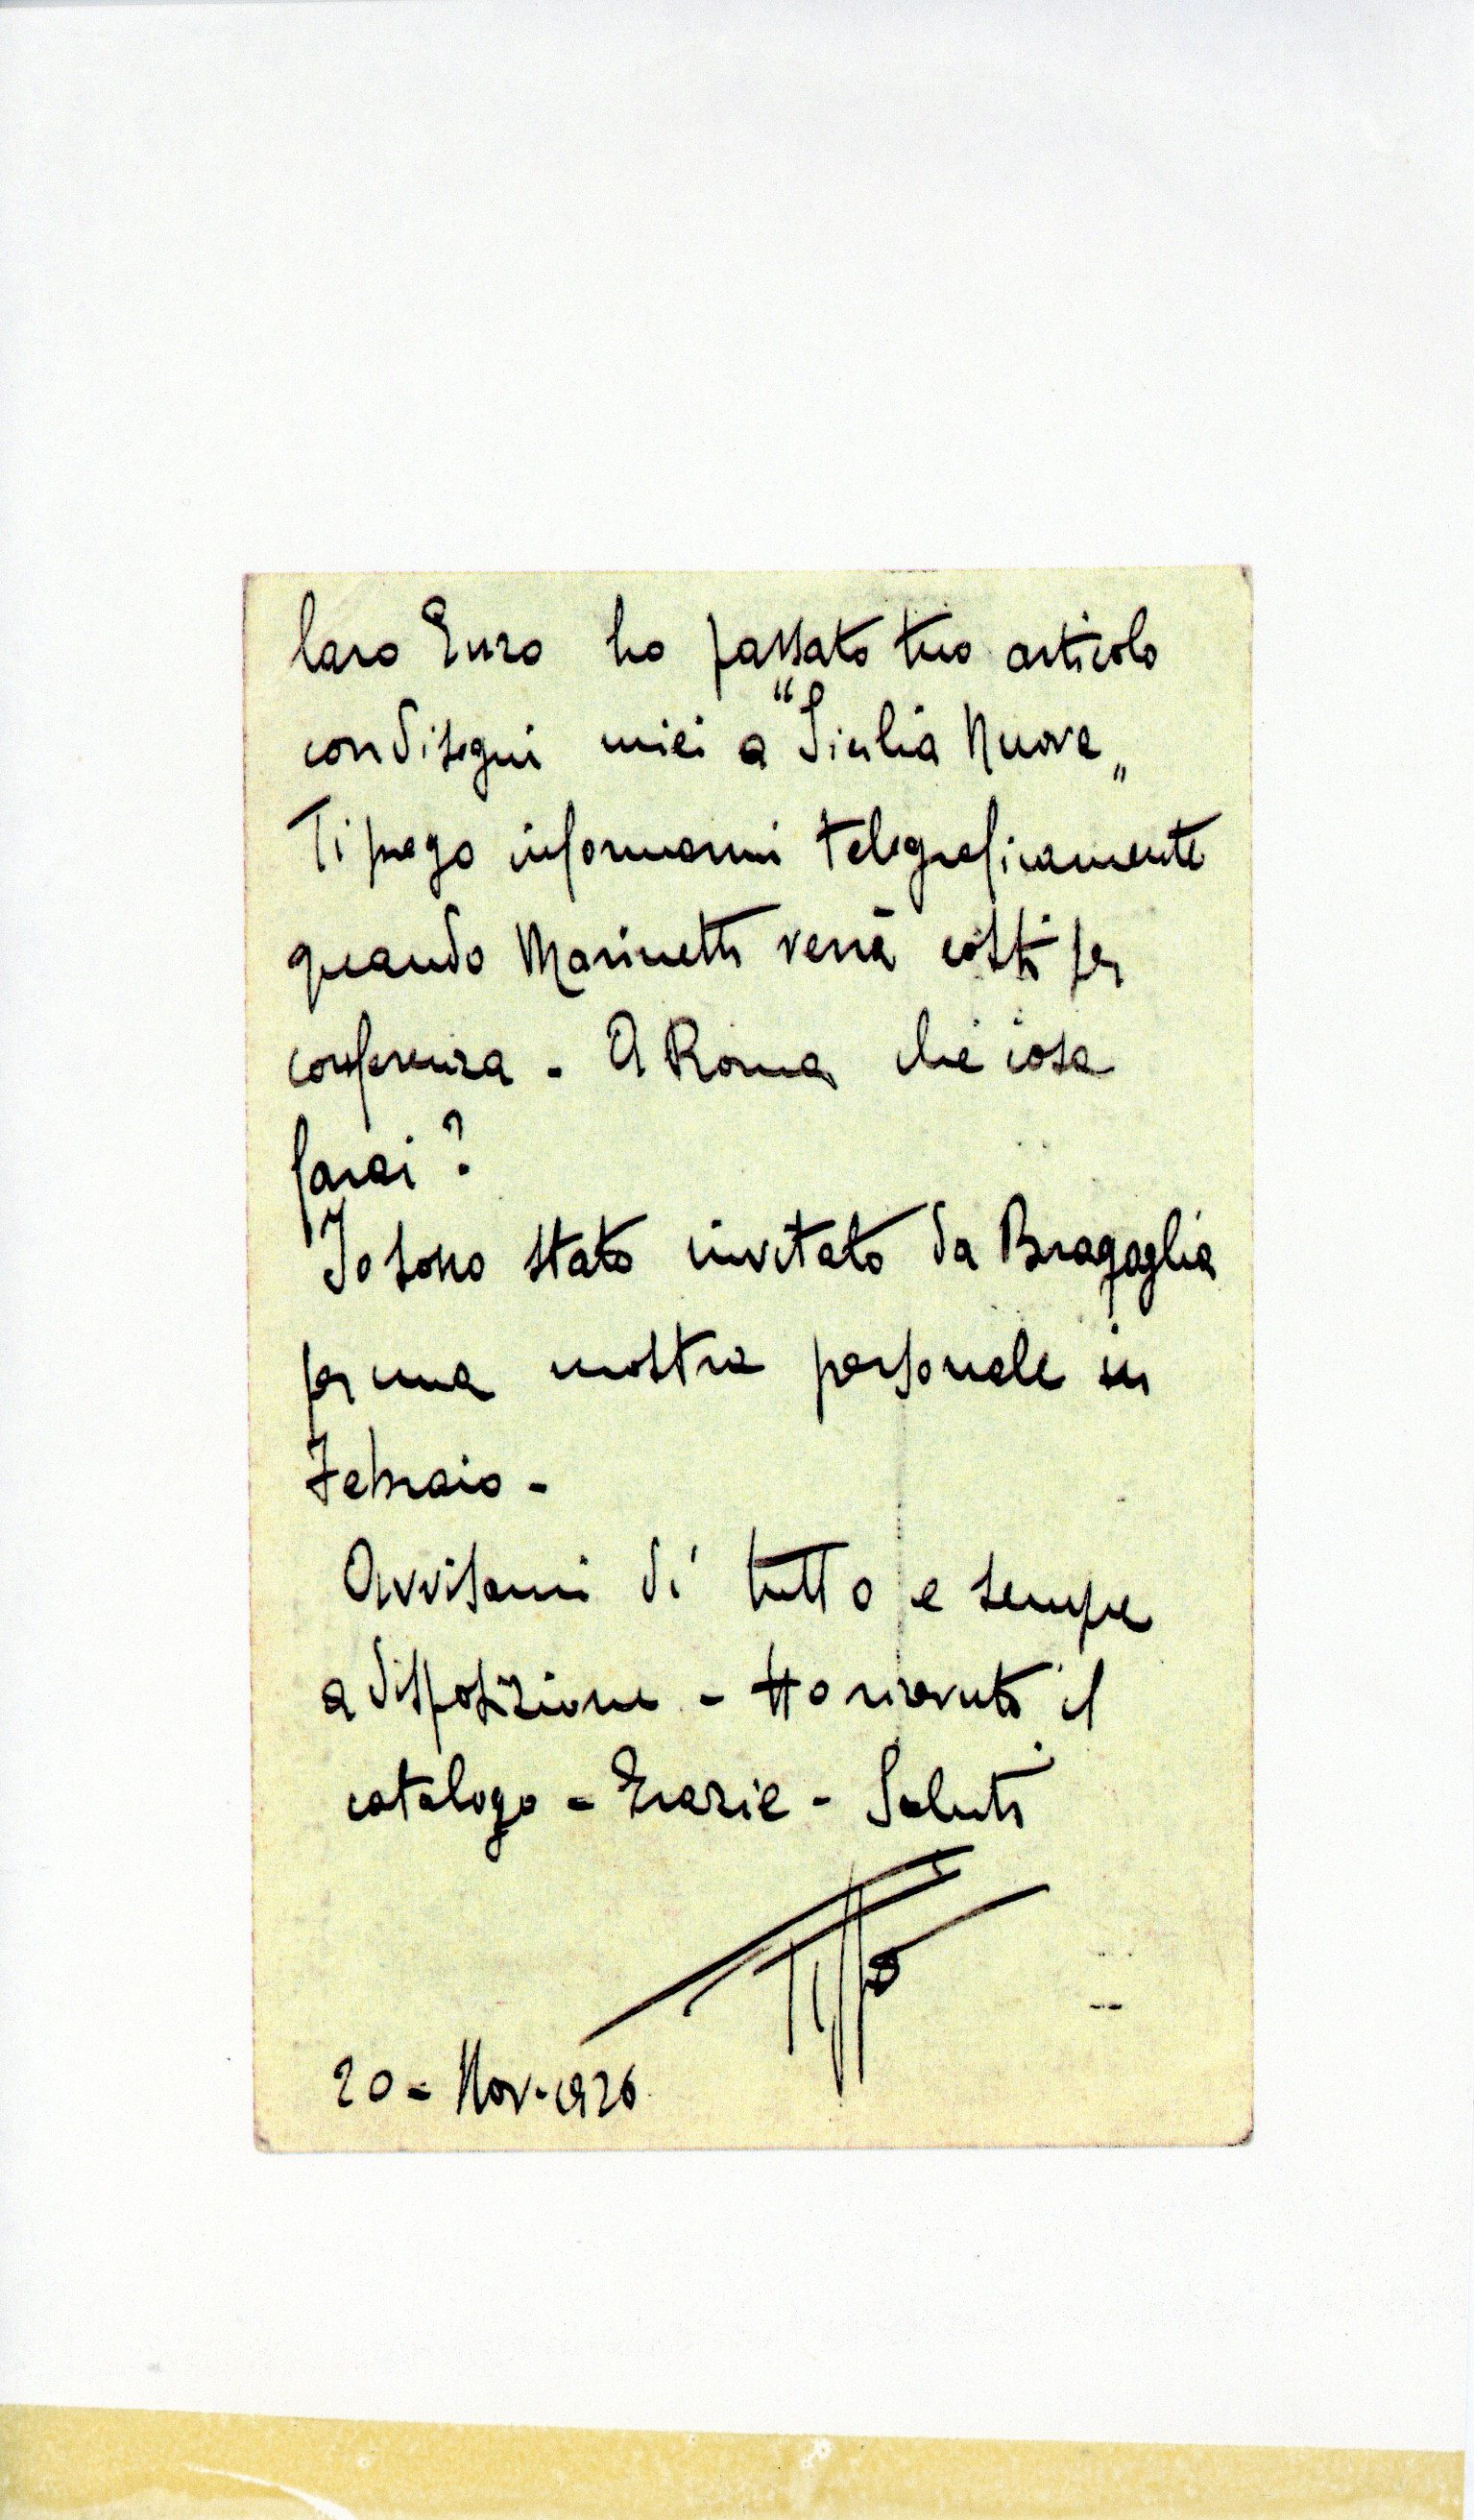 Caro Enzo ho passato tuo articolo
con disegni miei a “Sicilia Nuova„
Ti prego informarmi telegraficamente
quando Marinetti verrà costì per
conferenza - A Roma che cosa
farai?
Io sono stato invitato da Bragaglia
per una mostra personale in
Febraio -
Avvisami di tutto e sempre
a disposizione - Ho ricevuto il
catalogo - Grazie - Saluti
20 - Nov - 1926